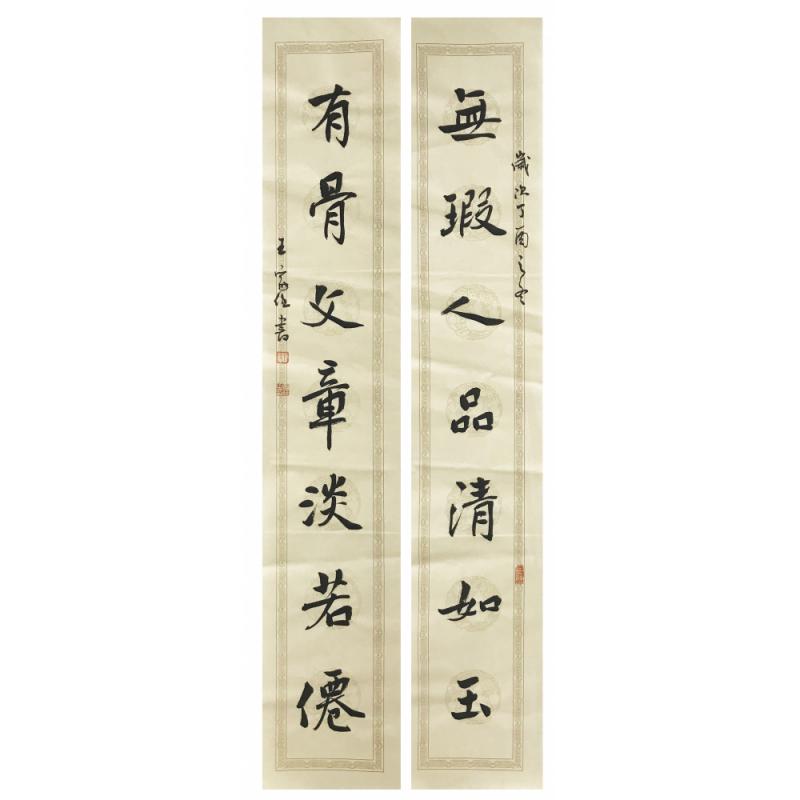 歲次丁酉之冬
無瑕人品清如玉
有骨文章淡若僊
王富仁書